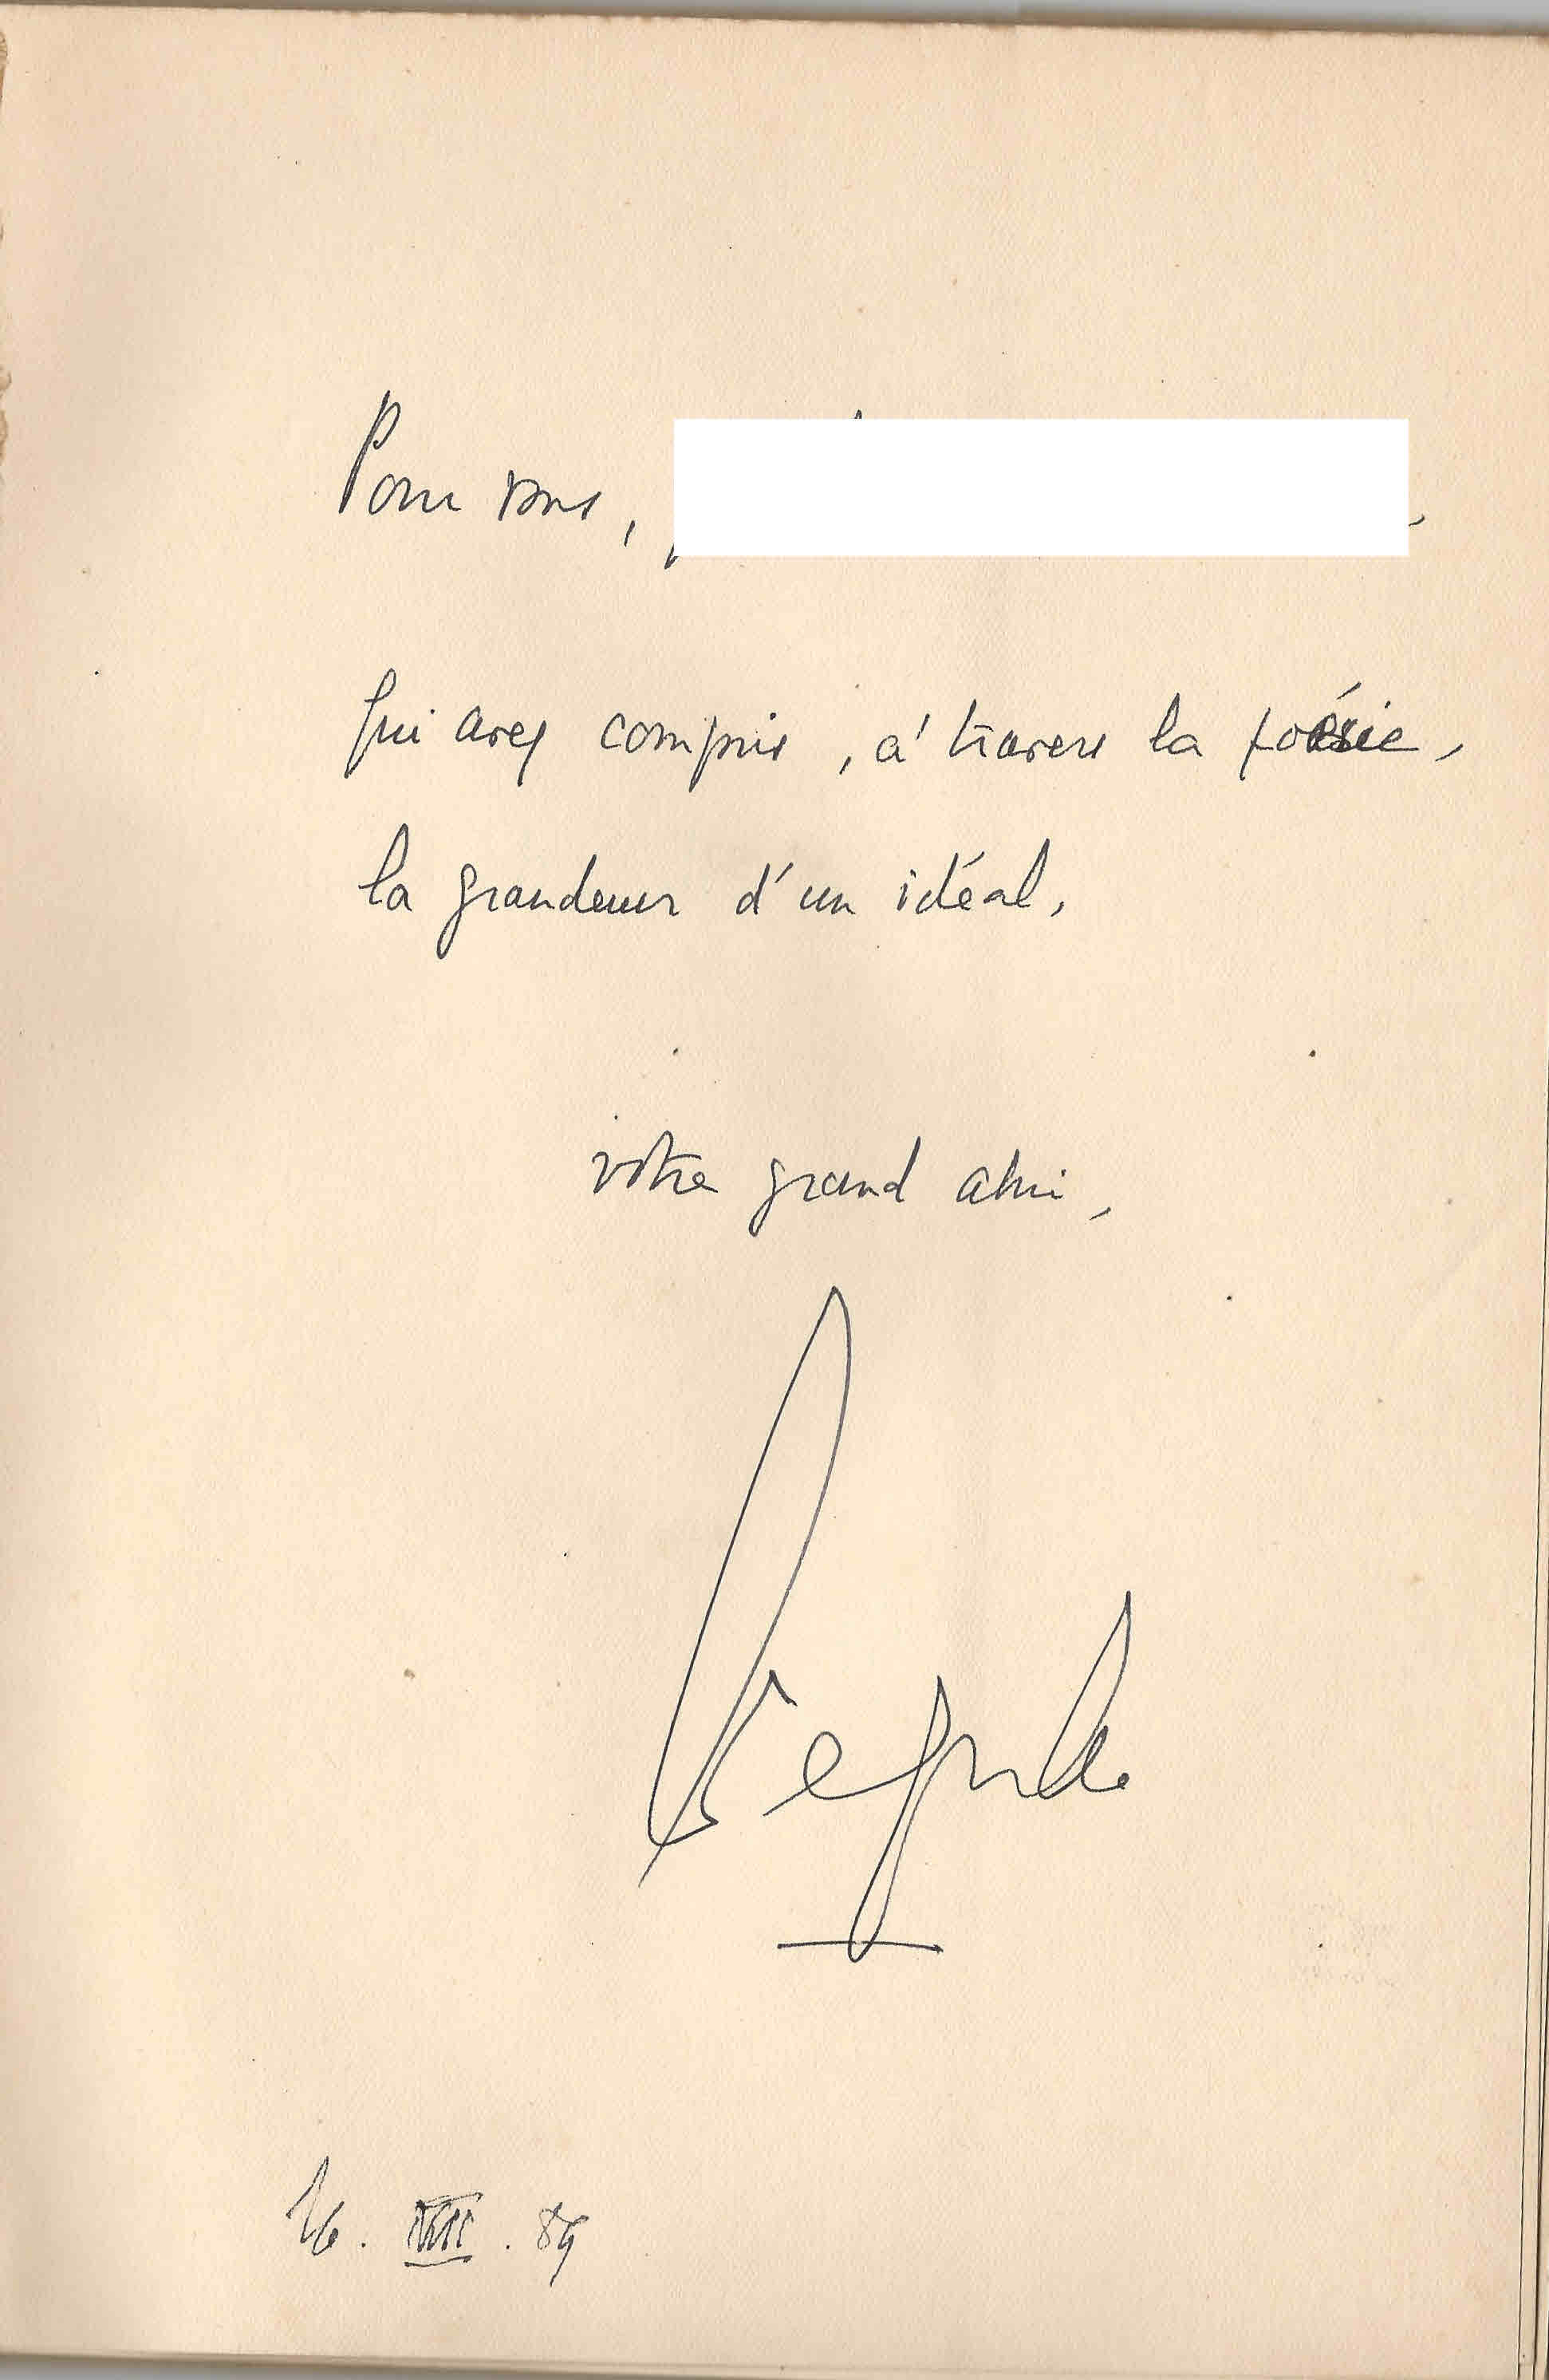 Pour vous,
qui avez compris, à travers la poésie,
la grandeur d'un idéal,
votre grand ami,
16. VIII. 89